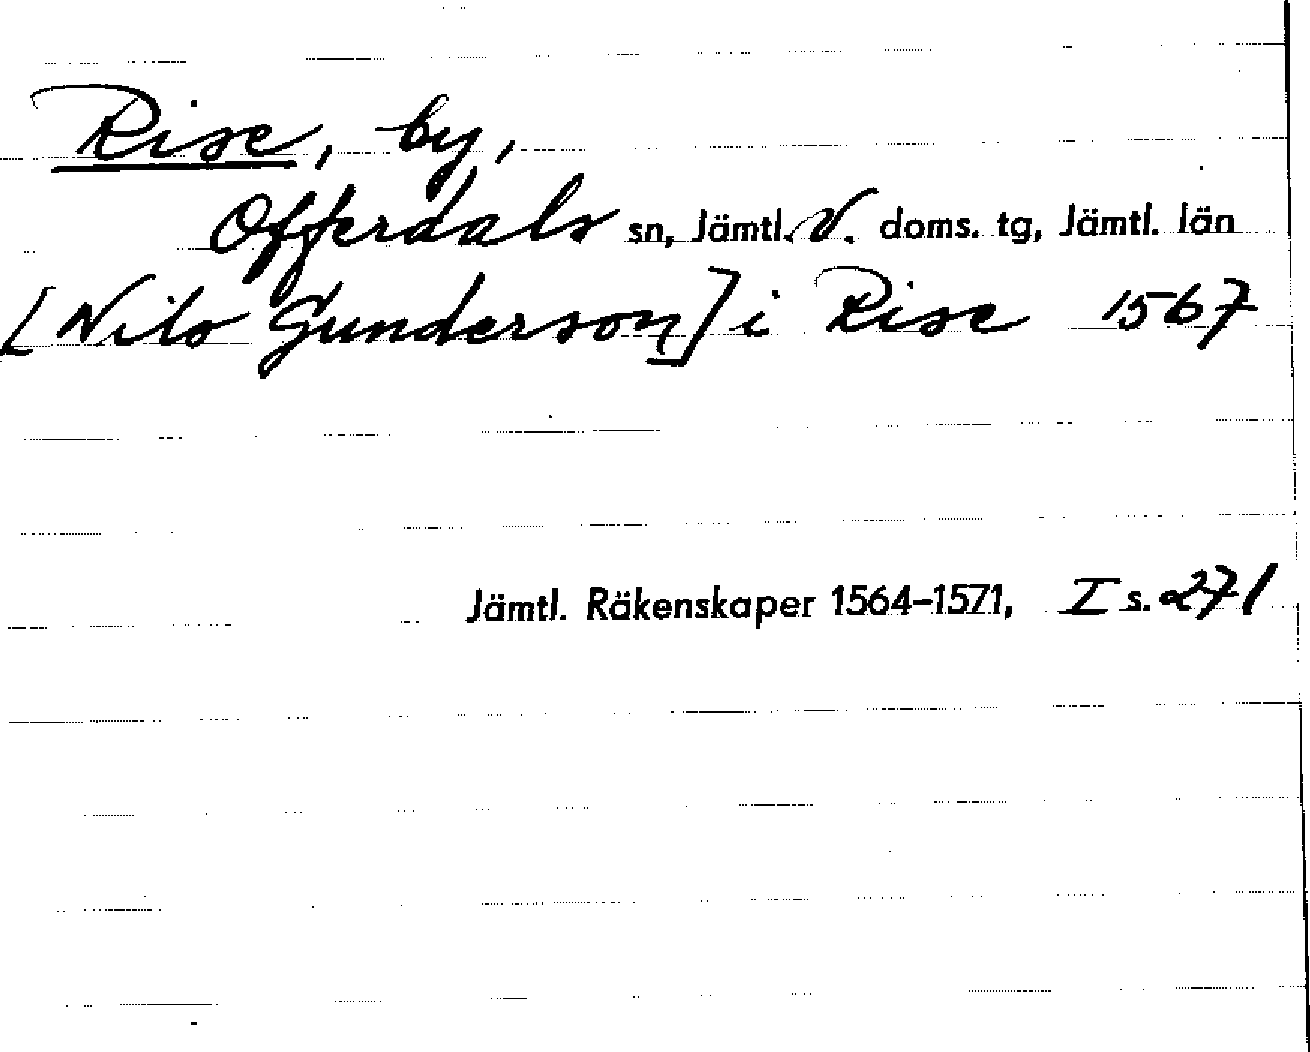 Rise, by,
Offerdals sn, Jämtl. V. doms. tg, Jämtl. län
[Nils Gunderson] i Rise 1567
Jämtl. Räkenskaper 1564-1571, I s. 271